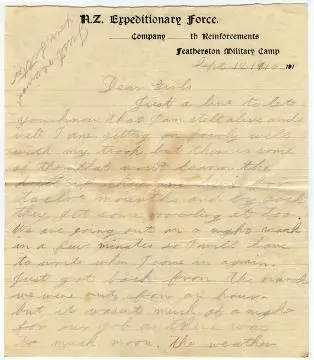 N.Z. Expeditionary Force.
Company th Reinforcements
Featherston Military Camp
Sept 191
Dear Girls
Just a line to let
you know that I am still alive and
well I am getting on fairly well
with my but there is some
of them that wont learn the
for
twelve months and by gock
they get some too.
We are going out on a night march
in a few minutes so I will have
to write when I come in again.
Just got back from the march
we were out for an hour
but it wasent much of a night
for our job as there was
to much moon. The weather